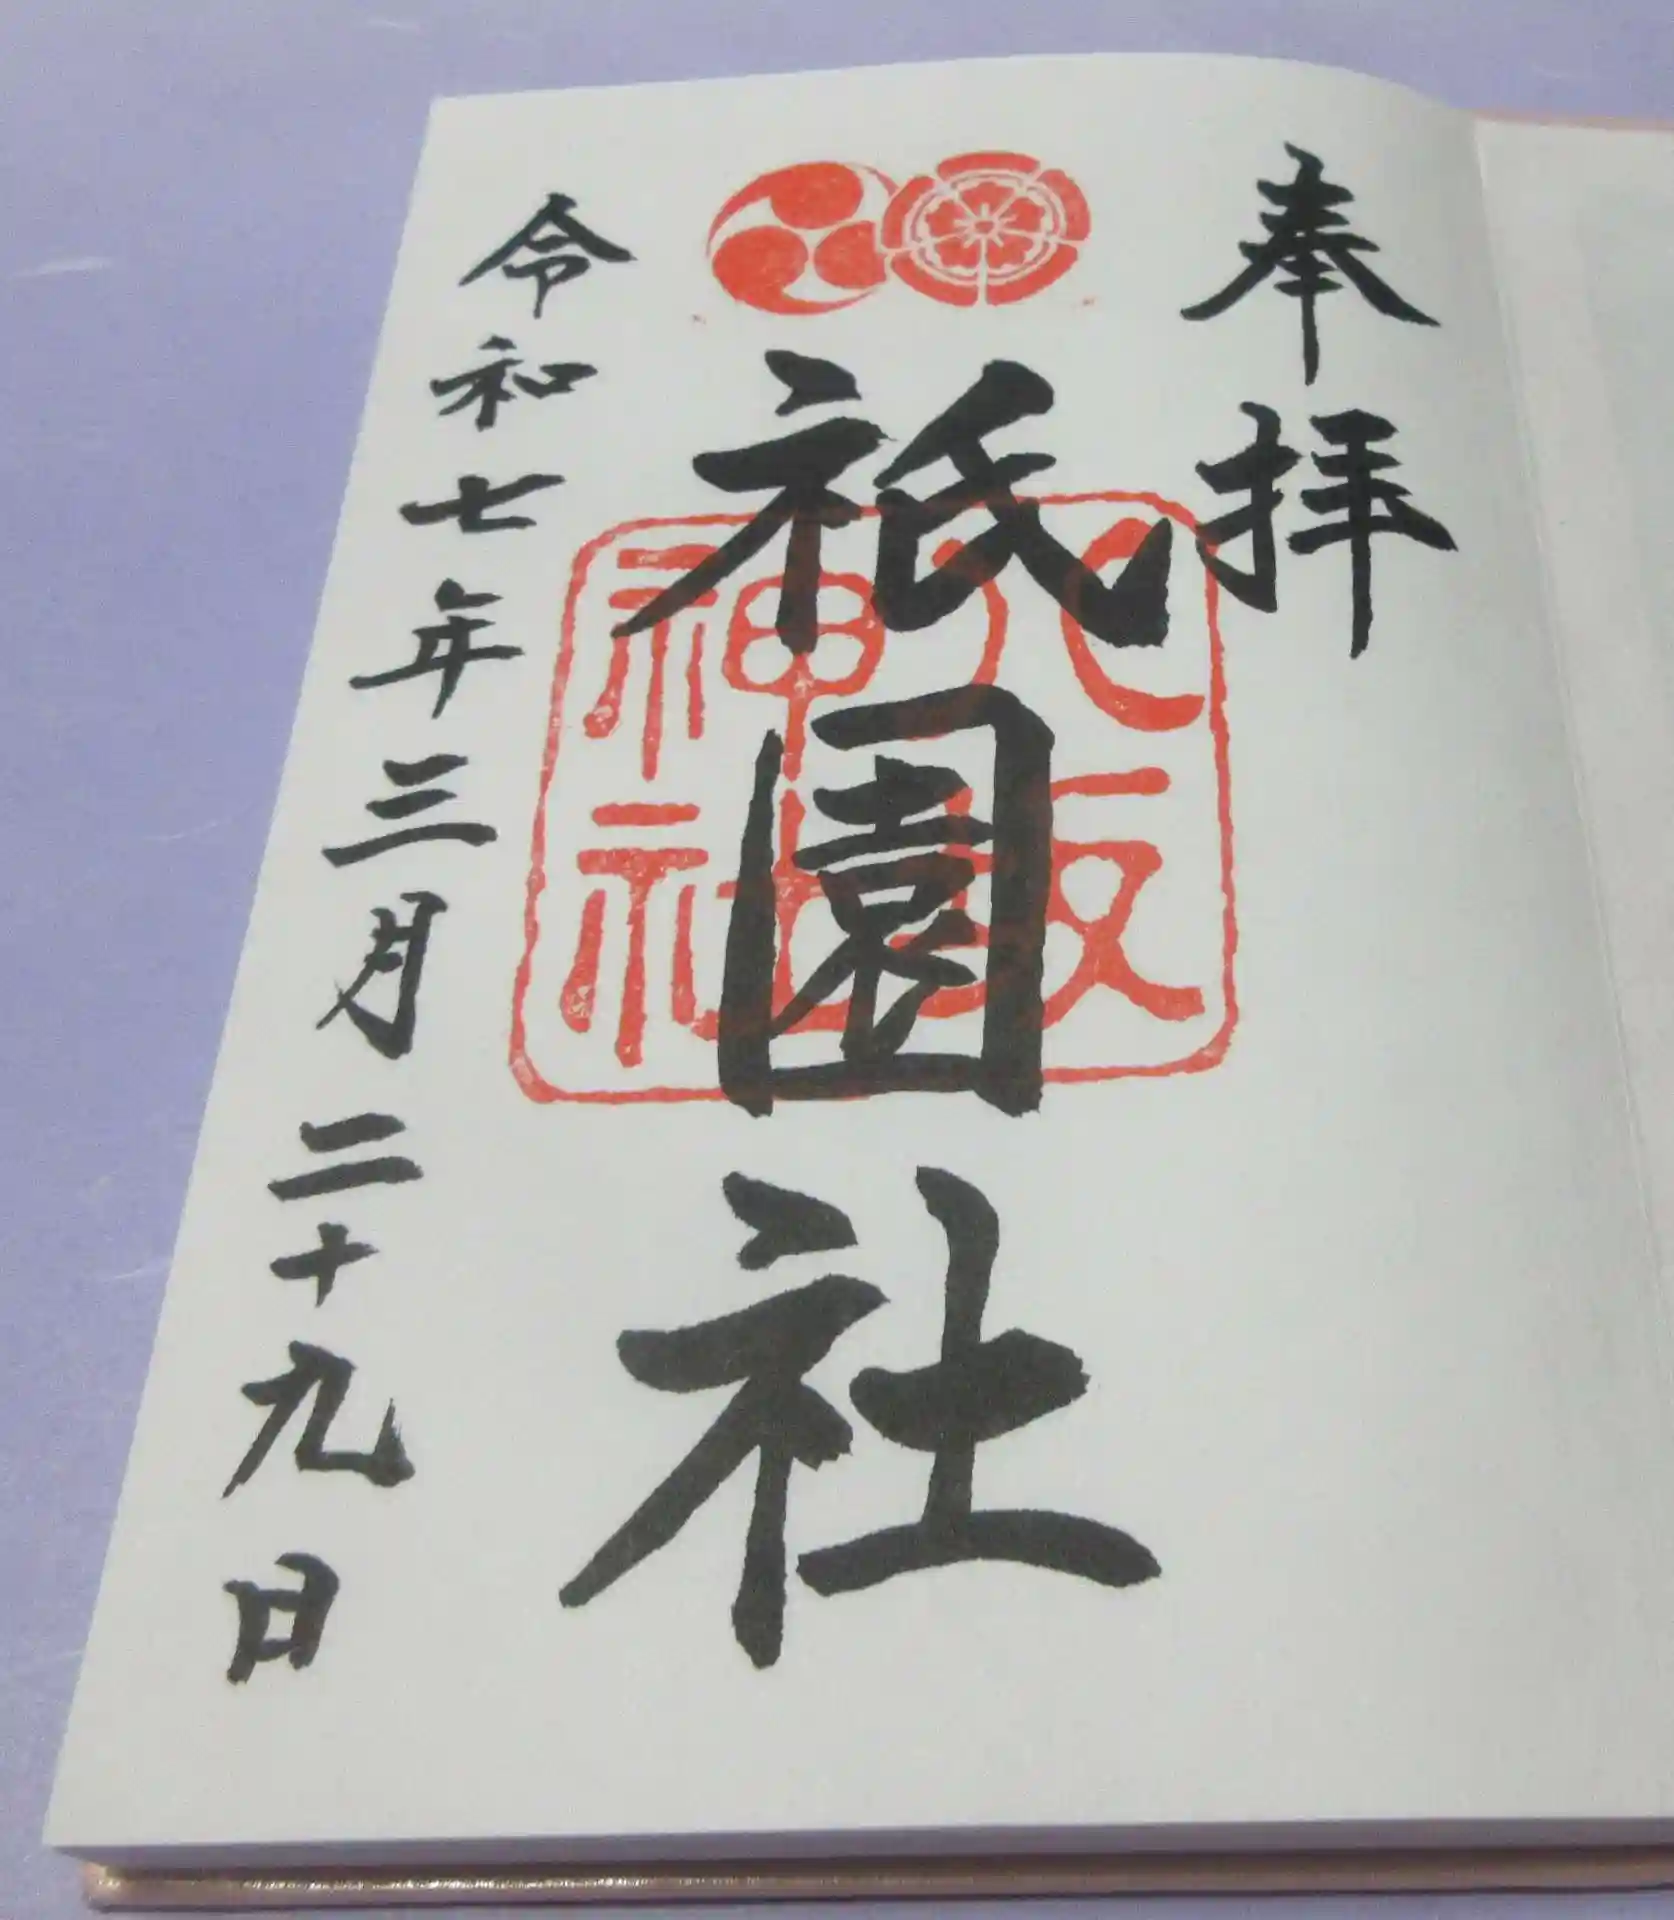 奉拝
祇園社
八坂
神社
令和七年三月二十九日